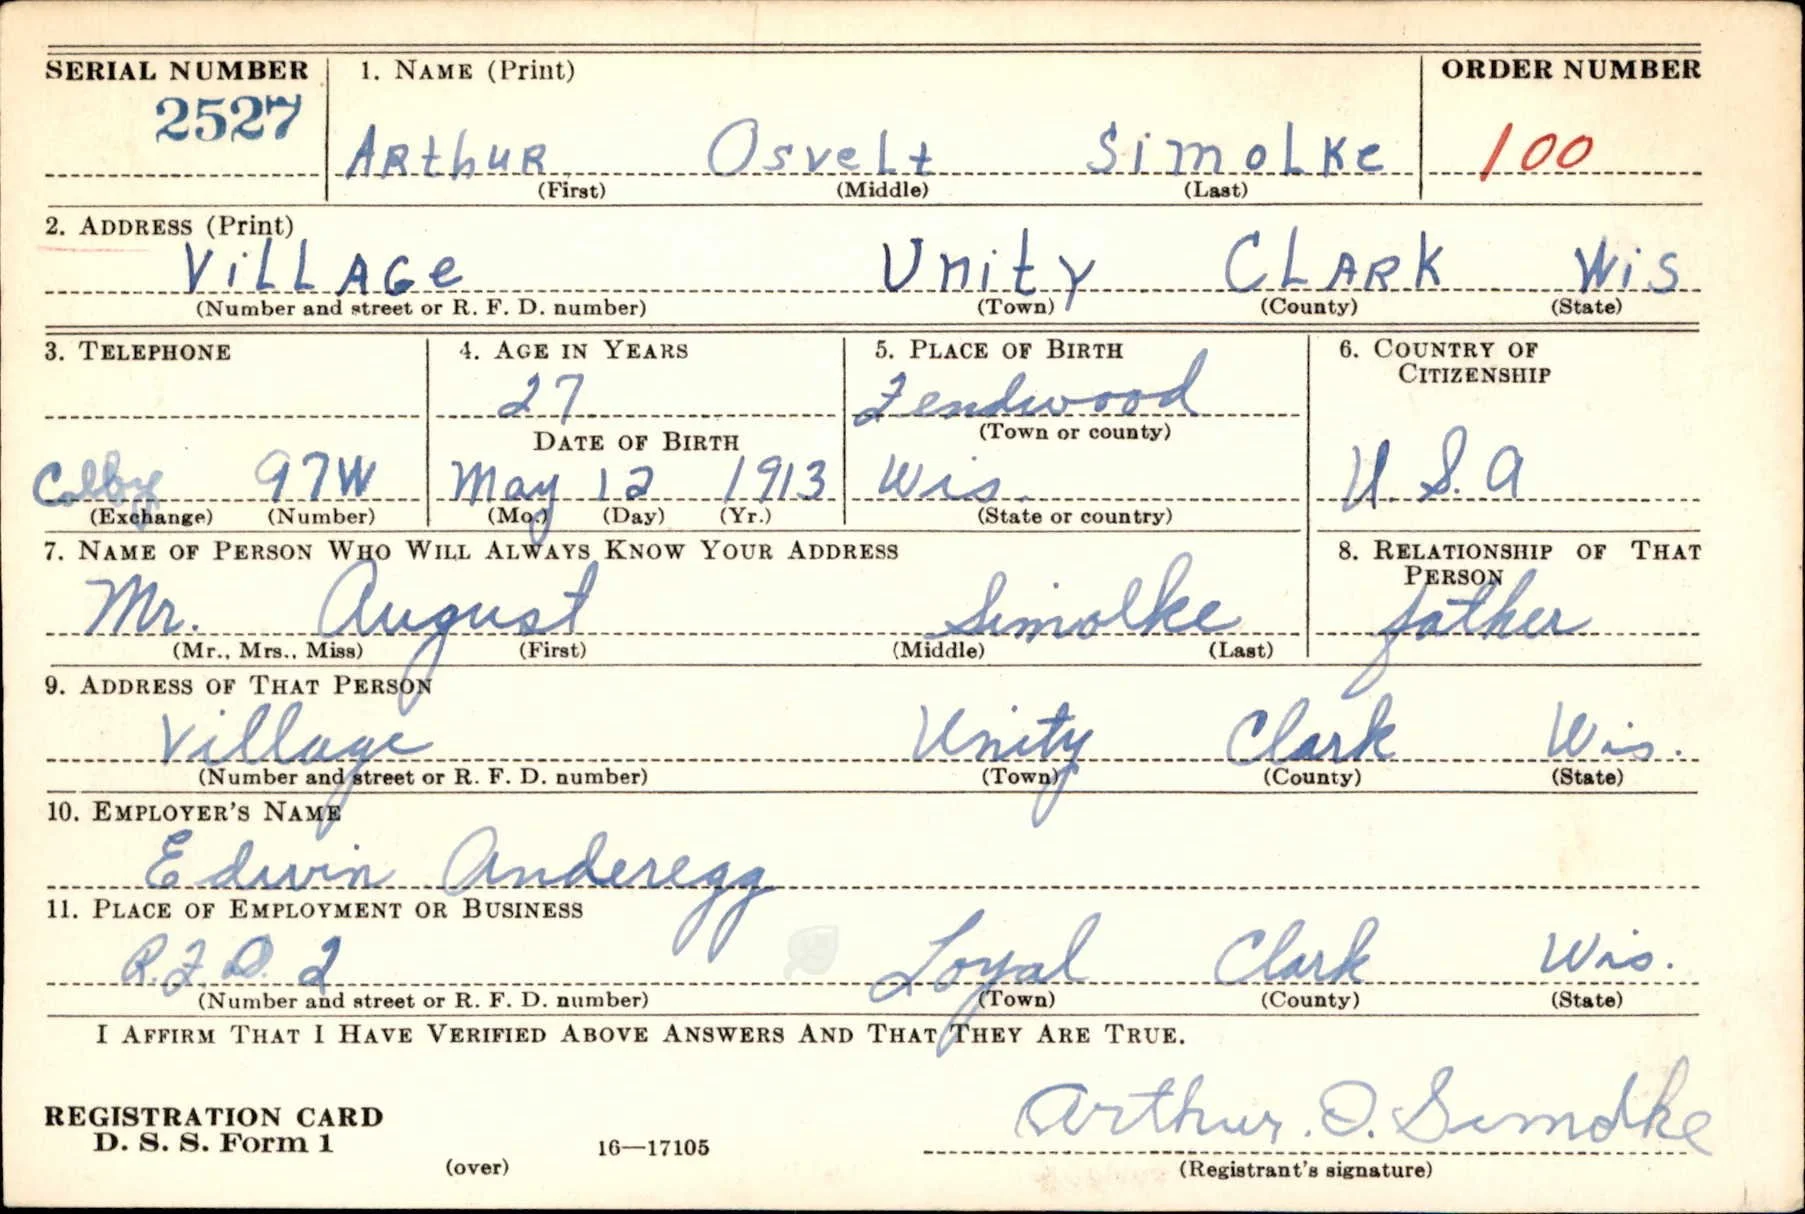 SERIAL NUMBER 1. NAME (Print) ORDER NUMBER
2527
ARthuR Osvelt Simolke 100
(First) (Middle) (Last)
2. ADDRESS (Print)
VillAGe Unity ClARk Wis
(Number and street or R. F. D. number) (Town) (County) (State)
3. TELEPHONE 4. AGE IN YEARS 5. PLACE OF BIRTH 6. COUNTRY OF
CITIZENSHIP
27 Fendwood
DATE OF BIRTH (Town or county)
Colby 97W May 12 1913 Wis. U.S.A
(Exchange) (Number) (Mo.) (Day) (Yr.) (State or country)
7. NAME OF PERSON WHO WILL ALWAYS KNOW YOUR ADDRESS 8. RELATIONSHIP OF THAT
PERSON
Mr. August Simolke father
(Mr., Mrs., Miss) (First) (Middle) (Last)
9. ADDRESS OF THAT PERSON
Village Unity Clark Wis.
(Number and street or R. F. D. number) (Town) (County) (State)
10. EMPLOYER'S NAME
Edwin Anderegg
11. PLACE OF EMPLOYMENT OR BUSINESS
R.F.D. 2 Loyal Clark Wis.
(Number and street or R. F. D. number) (Town) (County) (State)
I AFFIRM THAT I HAVE VERIFIED ABOVE ANSWERS AND THAT THEY ARE TRUE.
Arthur. O. Simolke
REGISTRATION CARD
D. S. S. Form 1 16—17105
(over) (Registrant's signature)